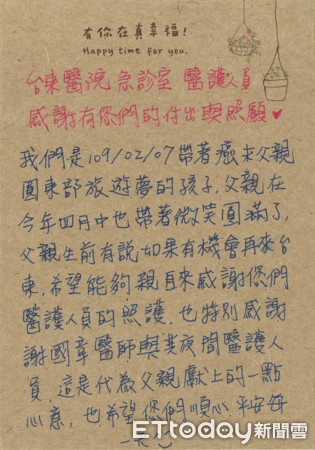 有你在真幸福!
Happy time for you.
台東醫院 急診室 醫護人員
感謝有你們的付出與照顧♥
我們是109/02/07帶著癌末父親
圓東部旅遊夢的孩子,父親在
今年四月中也帶著微笑圓滿了,
父親生前有說如果有機會再來台
東,希望能夠親自來感謝您們
醫護人員的照護,也特別感謝
謝國章醫師與其夜間醫護人
員,這是代為父親獻上的一點
心意,也希望您們順心平安每
一天
ETtoday新聞雲